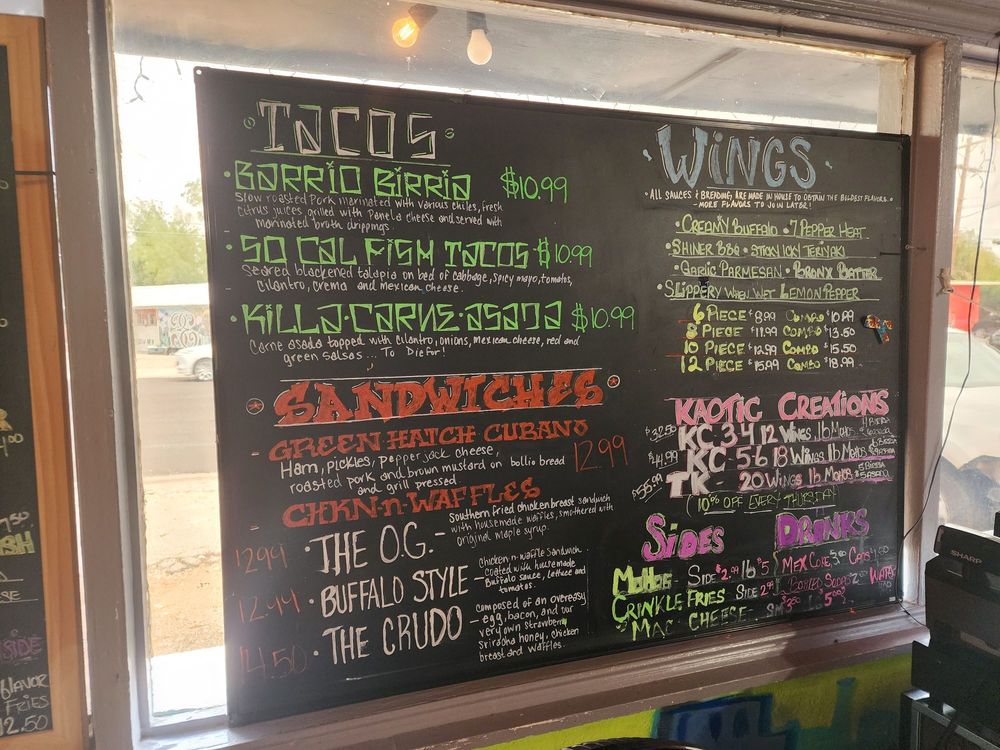 TACOS
BARRIO BIRRIA $10.99
Slow roasted Pork marinated with various chiles, fresh
citrus juices grilled with Panela cheese and served with
marinated broth drippings.
SO CAL FISH TACOS $10.99
Seared blackened talapia on bed of cabbage, spicy mayo, tomatos,
cilantro, crema and mexican cheese.
KILLA·CARNE·ASADA $10.99
Carne asada topped with cilantro, onions, mexican cheese, red and
green salsas ... To Die for!
SANDWICHES
- GREEN HATCH CUBANO 12.99
Ham, pickles, pepperjack cheese,
roasted pork and brown mustard on bollio bread
and grill pressed
- CHKN-n-WAFFLES
12.99 · THE O.G. -
Southern fried chicken breast sandwich
with housemade waffles, smothered with
original maple syrup.
12.99 · BUFFALO STYLE -
Chicken-n-waffle sandwich
coated with housemade
Buffalo sauce, lettuce and
tomatos.
14.50 · THE CRUDO -
composed of an overeasy
egg, bacon, and our
very own strawberry
Sriracha honey, chicken
breast and waffles.
WINGS
· ALL SAUCES & BREADING ARE MADE IN HOUSE TO OBTAIN THE BOLDEST FLAVORS. ·
MORE FLAVORS TO JOIN LATER!
· CREAMY BUFFALO · 7 PEPPER HEAT
· SHINER BBQ · STICKY ICKY TERIYAKI
· GARLIC PARMESAN · BRONX BATTER
· SLIPPERY WHEN WET LEMON PEPPER
6 PIECE $8.99 COMBO $10.99
8 PIECE $11.99 COMBO $13.50
10 PIECE $12.99 COMBO $15.50
12 PIECE $15.99 COMBO $18.99
KAOTIC CREATIONS
$32.50 KC 3-4 12 WINGS 1lb MOFOS
$44.99 KC 5-6 18 WINGS 1lb MOFOS
$55.99 TK - 20 WINGS 1lb MOFOS
(10% OFF EVERY THURSDAY)
SIDES
MOFOS - SIDE $2.99 lb $5
CRINKLE FRIES SIDE 2.99
MAC CHEESE - SM $3.50 LG $5.00
DRINKS
MEX COKE
BOTTLED SODAS
WATER
SHARP
SIDE
FLAVOR
FRIES
12.50